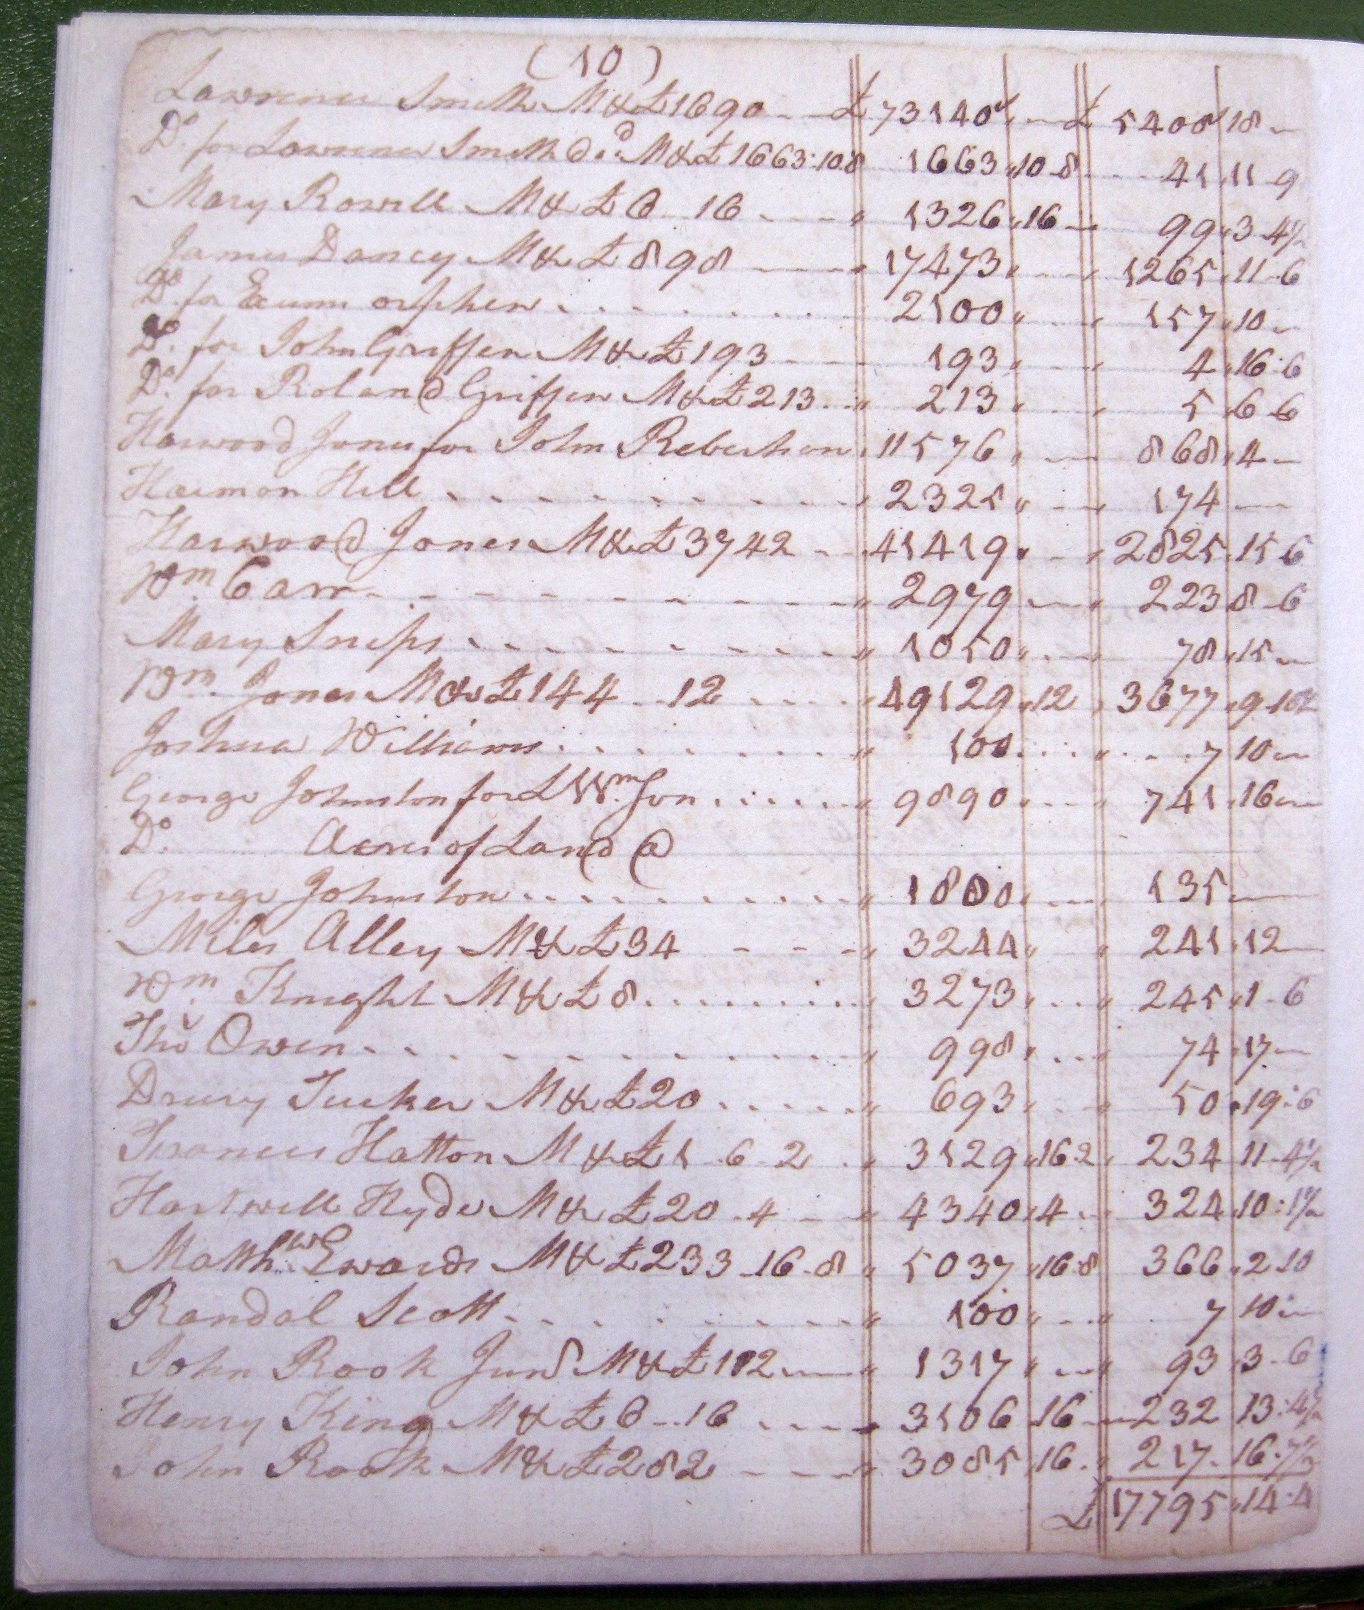 (10)
Lawrence Smith M&£1690 £73140 £5408 18
Do. for Lawrence Smith M&£1663:10.8 1663 10 8 41 11 9
Mary Rowell M&£6 16 1326 16 99 3 4½
James Dancy M&£898 17473 1265 11 6
Do. for Exum orphen 2100 157 10
Do. for John Griffen M&£193 193 4 16:6
Do. for Roland Griffen M&£213 213 5 6 6
Harwood Jones for John Robertson 11576 868 4
Harmon Hill 2325 174
Harwood Jones M&£3742 41419 2825 15 6
Wm. Carr 2979 223 8 6
Mary Snips 1050 78 15
Wm. Jones M&£144 12 49129 12 3677 9 10½
Joshua Williams 100 7 10
George Johnston for Wm. 9890 741 16
Do. Acres of Land @
George Johnston 1800 135
Miles Alley M&£34 3244 241 12
Wm. Knight M&£8 3273 245 1 6
Tho Owen 998 74 17
Drury Tucker M&£20 693 50 19:6
Francis Hatton M&£1 6 2 3129 16 2 234 11 4½
Hartwell Hyde M&£20 4 4340 4 324 10:1½
Matthw. Ewards M&£233 16 8 5037 16:8 366 2 10
Randal Scott 100 7 10
John Rook Junr M&£112 1317 93 3 6
Henry King M&£6 16 3106 16 232 13:4½
John Rook M&£282 3085 16 217 16:7½
£17795 14:4